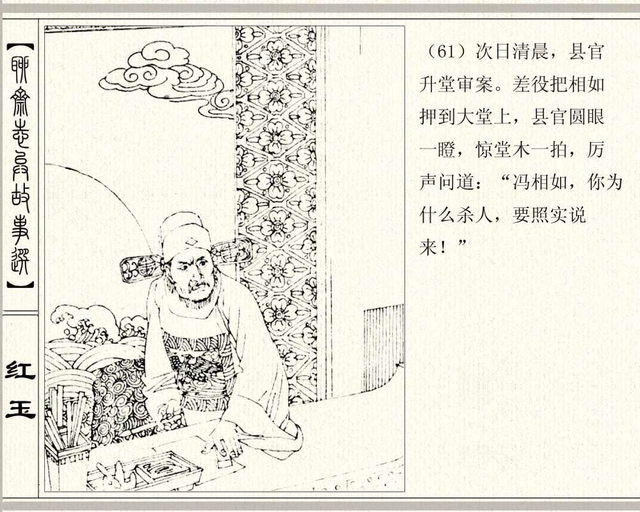 【聊斋志异故事选】
红玉
（61）次日清晨，县官
升堂审案。差役把相如
押到大堂上，县官圆眼
一瞪，惊堂木一拍，厉
声问道：“冯相如，你为
什么杀人，要照实说
来！”